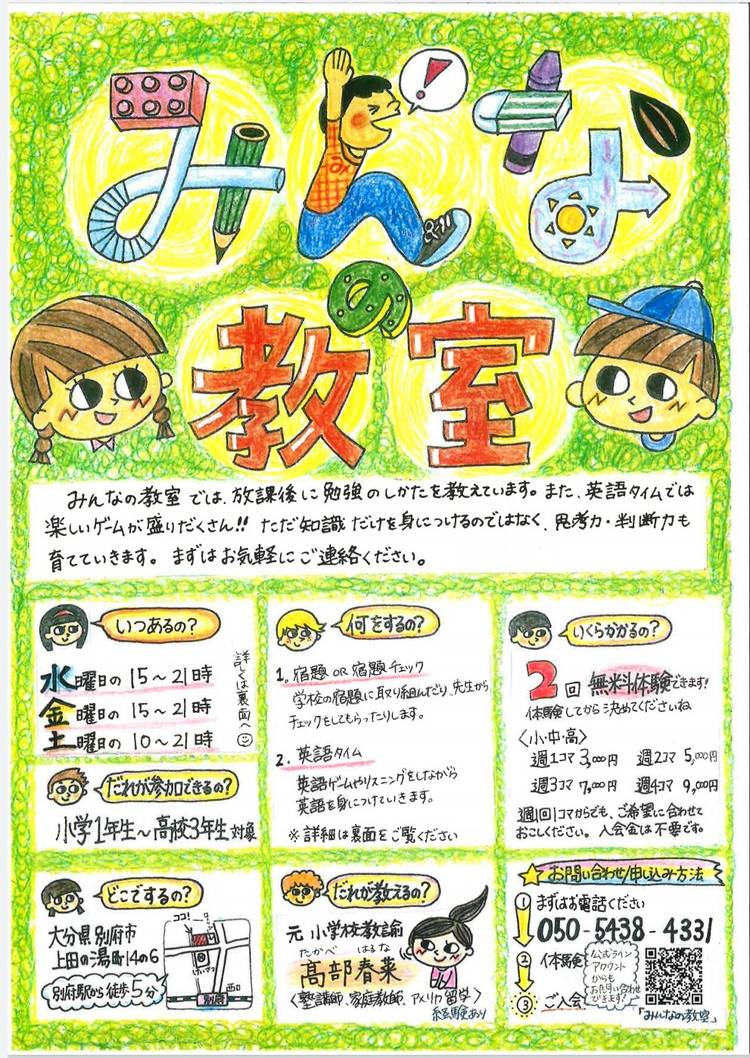 みんな
の
教室
みんなの教室では、放課後に勉強のしかたを教えています。また、英語タイムでは
楽しいゲームが盛りだくさん!! ただ知識だけを身につけるのではなく、思考力・判断力も
育てていきます。まずはお気軽にご連絡ください。
いつあるの?
水曜日の 15〜21時
金曜日の 15〜21時
土曜日の 10〜21時
詳しくは裏面へ
だれが参加できるの?
小学1年生〜高校3年生対象
何をするの?
1. 宿題 OR 宿題チェック
学校の宿題に取り組んだり、先生から
チェックをしてもらったりします。
2. 英語タイム
英語ゲームやリスニングをしながら
英語を身につけていきます。
※詳細は裏面をご覧ください
いくらかかるの?
2回 無料体験できます!
体験してから決めてくださいね
〈小・中・高〉
週1コマ 3,000円 週2コマ 5,000円
週3コマ 7,000円 週4コマ 9,000円
週1回1コマからでも、ご希望に合わせて
おこしください。入会金は不要です。
どこでするの?
大分県別府市
上田の湯町14の6
別府駅から徒歩5分
ココ!
西口
別府
だれが教えるの?
元 小学校教諭
たかべ はるな
髙部春菜
〈塾講師、家庭教師、アメリカ留学〉
経験あり
お問い合わせ/申し込み方法
① まずはお電話ください
050-5438-4331
② 体験
③ ご入会
公式ライン
アカウント
からも
お問い合わせ
できます!
「みんなの教室」